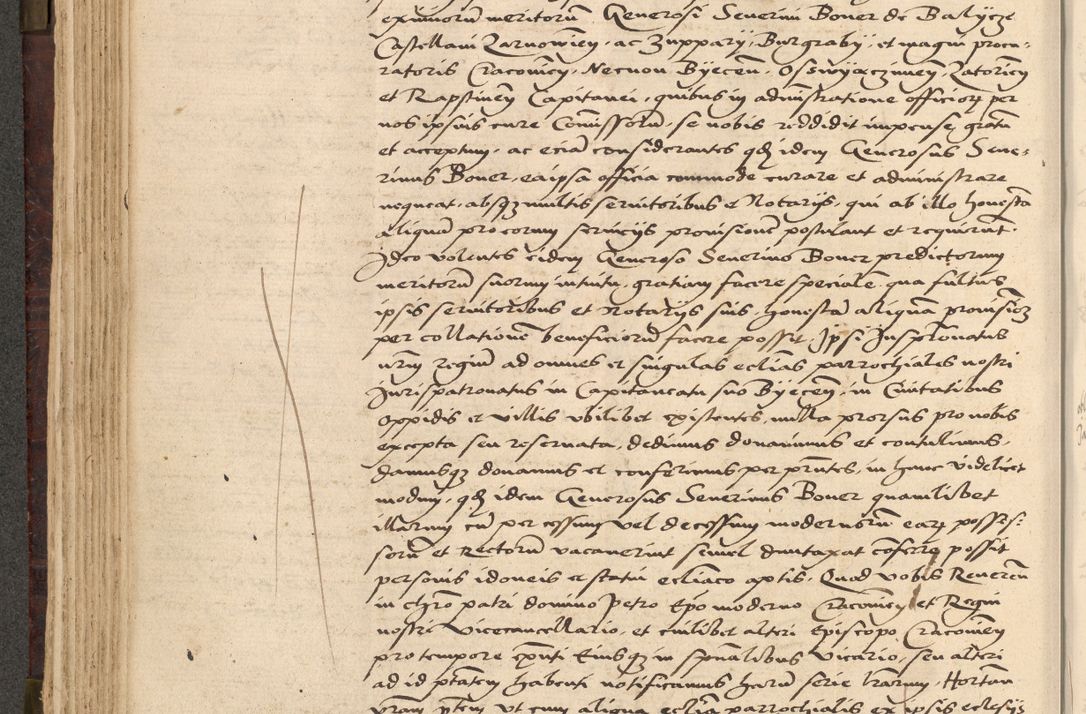 eximiorum meritorum Generosi Severini Boner de Balycze
Castellani Zarnowien, ac Zuppary, Burgraby, et magni procu-
ratoris Cracovien, Necnon Byecen, Osswyaczimen, Zatorien
et Rapstinen Capitanei, quibus in administratione officiorum per
nos ipsius cure Comissorum, se nobis reddidit impense gratum
et acceptum, ac eciam considerantes quod idem Generosus Seve-
rinus Boner, ea ipsa officia commode curare et administrare
nequeat, absque multis servitoribus et Notarys, qui ab illo honestam
aliquam pro eorum serviciis provisionem postulant et requirunt.
Ideo volentes eidem Generoso Severino Boner predictorum
meritorum suorum intuitu, gratiam facere specialem, qua fultus
ipsis servitoribus et Notarys suis, honestam aliquam provisionem
per collationem beneficiorum facere possit, Ipsi Juspatronatus
nrm regium ad omnes et singulas eclias parrochiales nostri
Jurispatronatus in Capitaneatu suo Byecen, in Civitatibus
oppidis et villis ubilibet existentes, nulla prorsus pro nobis
excepta seu reservata, dedimus donavimus et contulimus,
damusque donamus et conferimus per prntes, in hunc videlicet
modum, quod idem Generosus Severinus Boner quamlibet
illarum cum per cessum vel decessum modernorum earum posses-
sorum et Rectorum vacaverint semel duntaxat conferre possit
personis idoneis et statui ecliaco aptis. Quod vobis Reveren
in chro patri domino Petro Epo moderno Cracovien et Regni
nostri Vicecancellario, et cuilibet alteri Episcopo Cracovien
pro tempore exnti Eiusque in spualibus Vicario, seu alteri
ad id ptatem habenti notificamus harum serie lrarum. Hortan
vram ut cum aliqua eclia parrochialis ex ipsis eclesys